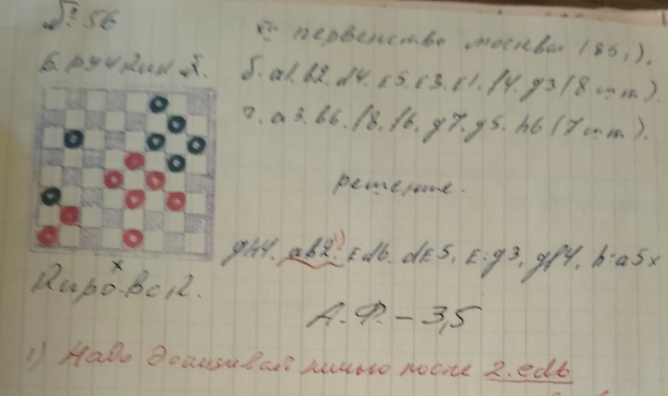 № 56
IX первенство Москвы (85г.).
Б. Кучкин Л.
б. a1. b2. d4. e5. e3. e1. f4. g3 (8 шт.)
ч. a3. b6. f8. f6. g7. g5. h6 (7 шт.)
решение.
gh4. ab2. 1) ed6. de5. e:g3, gf4, h:a5x
Кировск.
А.Ф. – 3,5
1) Надо дописывать линию после 2. ed6